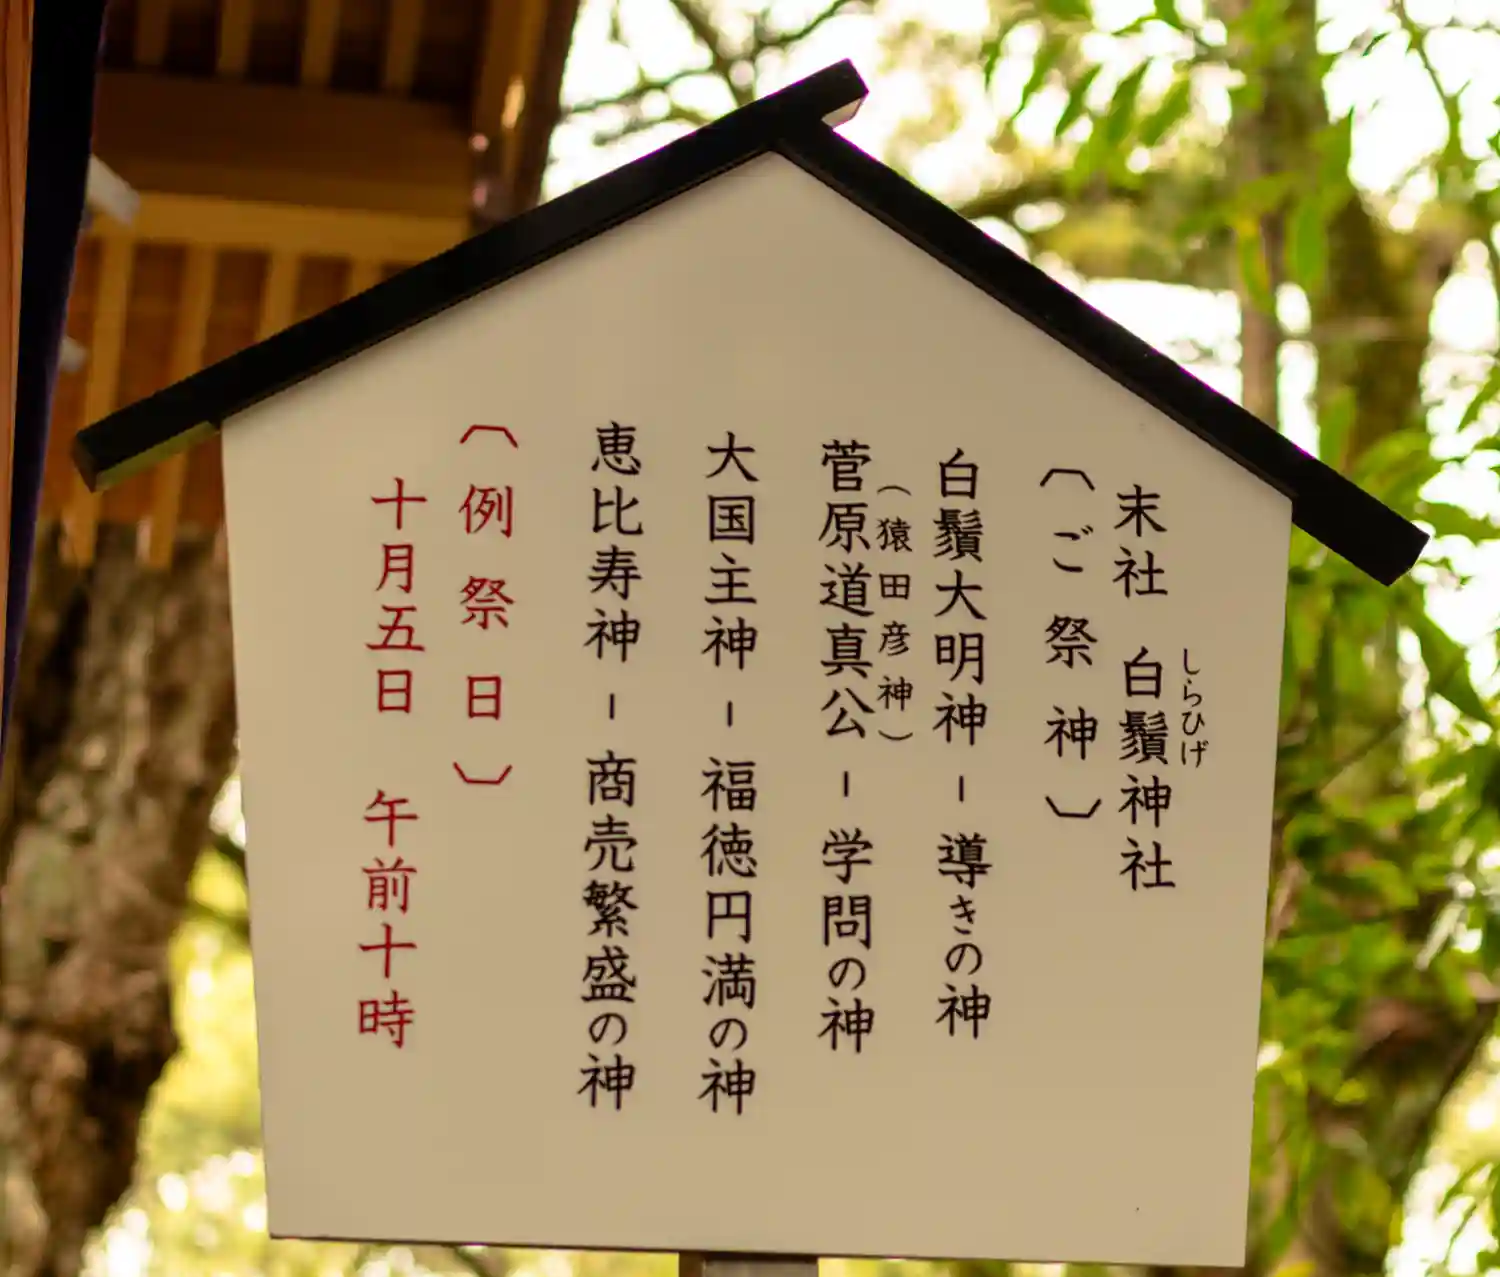 末社 白鬚神社
しらひげ
〔ご祭神〕
白鬚大明神-導きの神
（猿田彦神）
菅原道真公-学問の神
大国主神-福徳円満の神
恵比寿神-商売繁盛の神
〔例祭日〕
十月五日 午前十時